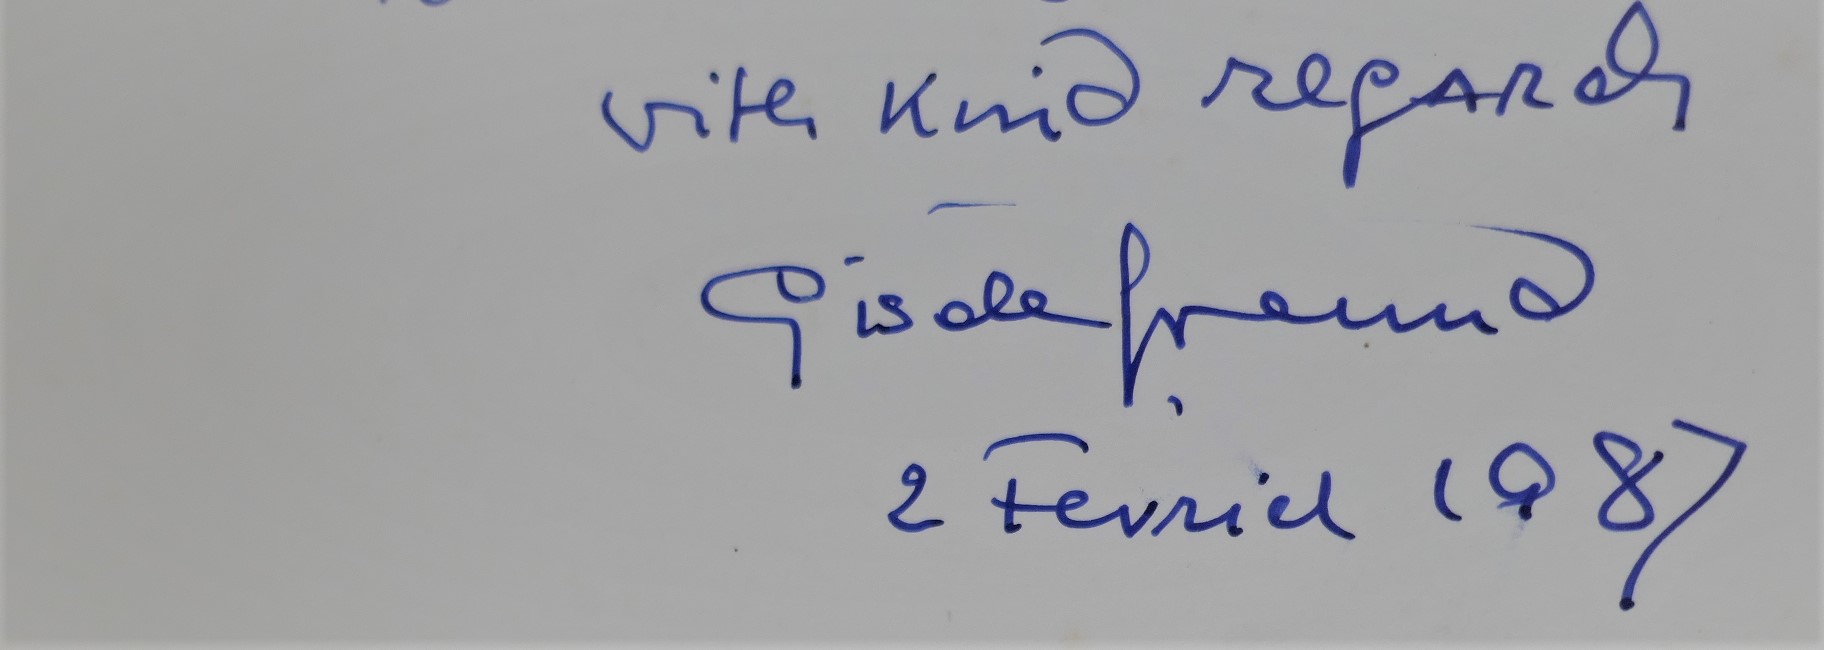 with kind regards
Gisèle Freund
2 Fevrier 1987